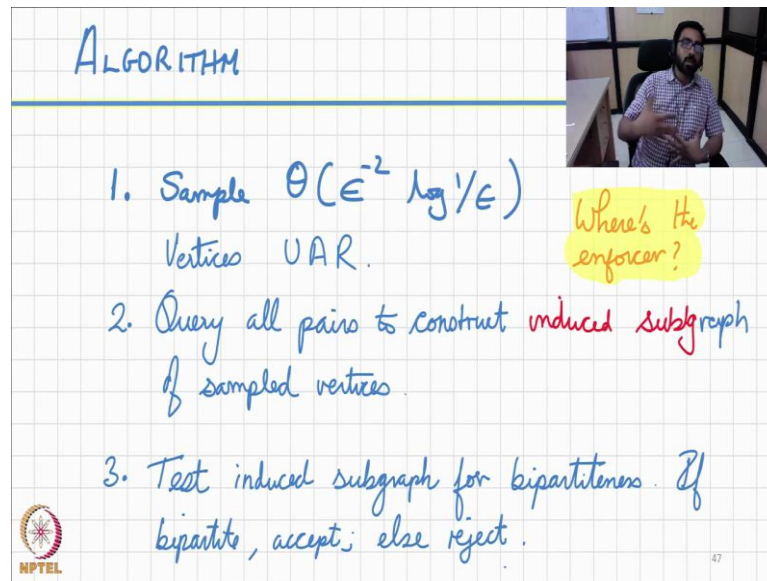 ALGORITHM
1. Sample Θ(ϵ⁻² log 1/ϵ)
Vertices UAR.
Where's the
enforcer?
2. Query all pairs to construct induced subgraph
of sampled vertices.
3. Test induced subgraph for bipartiteness. If
bipartite, accept; else reject.
NPTEL
47